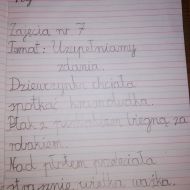 Zajęcia nr 7
Temat: Uzupełniamy
zdania.
Dziewczynka chciała
spotkać krasnoludka.
Ptak z pisklakiem biegną za
robakiem.
Nad płotem przeleciała
strasznie wielka ważka.